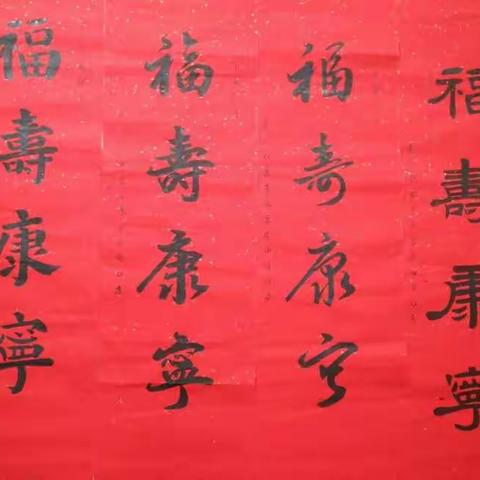 福壽康寧
福寿康宁
福壽康寧
福壽康寧